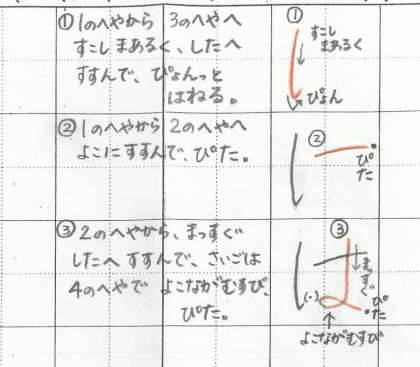 ①1のへやから 3のへやへ
すこしまあるく、したへ
すすんで、ぴょんっと
はねる。
①
すこし
まあるく
ぴょん
②1のへやから 2のへやへ
よこにすすんで、ぴた。
②
ぴた
③2のへやから、まっすぐ
したへすすんで、さいごは
4のへやで よこながむすび、
ぴた。
③
まっすぐ
ぴた
よこながむすび